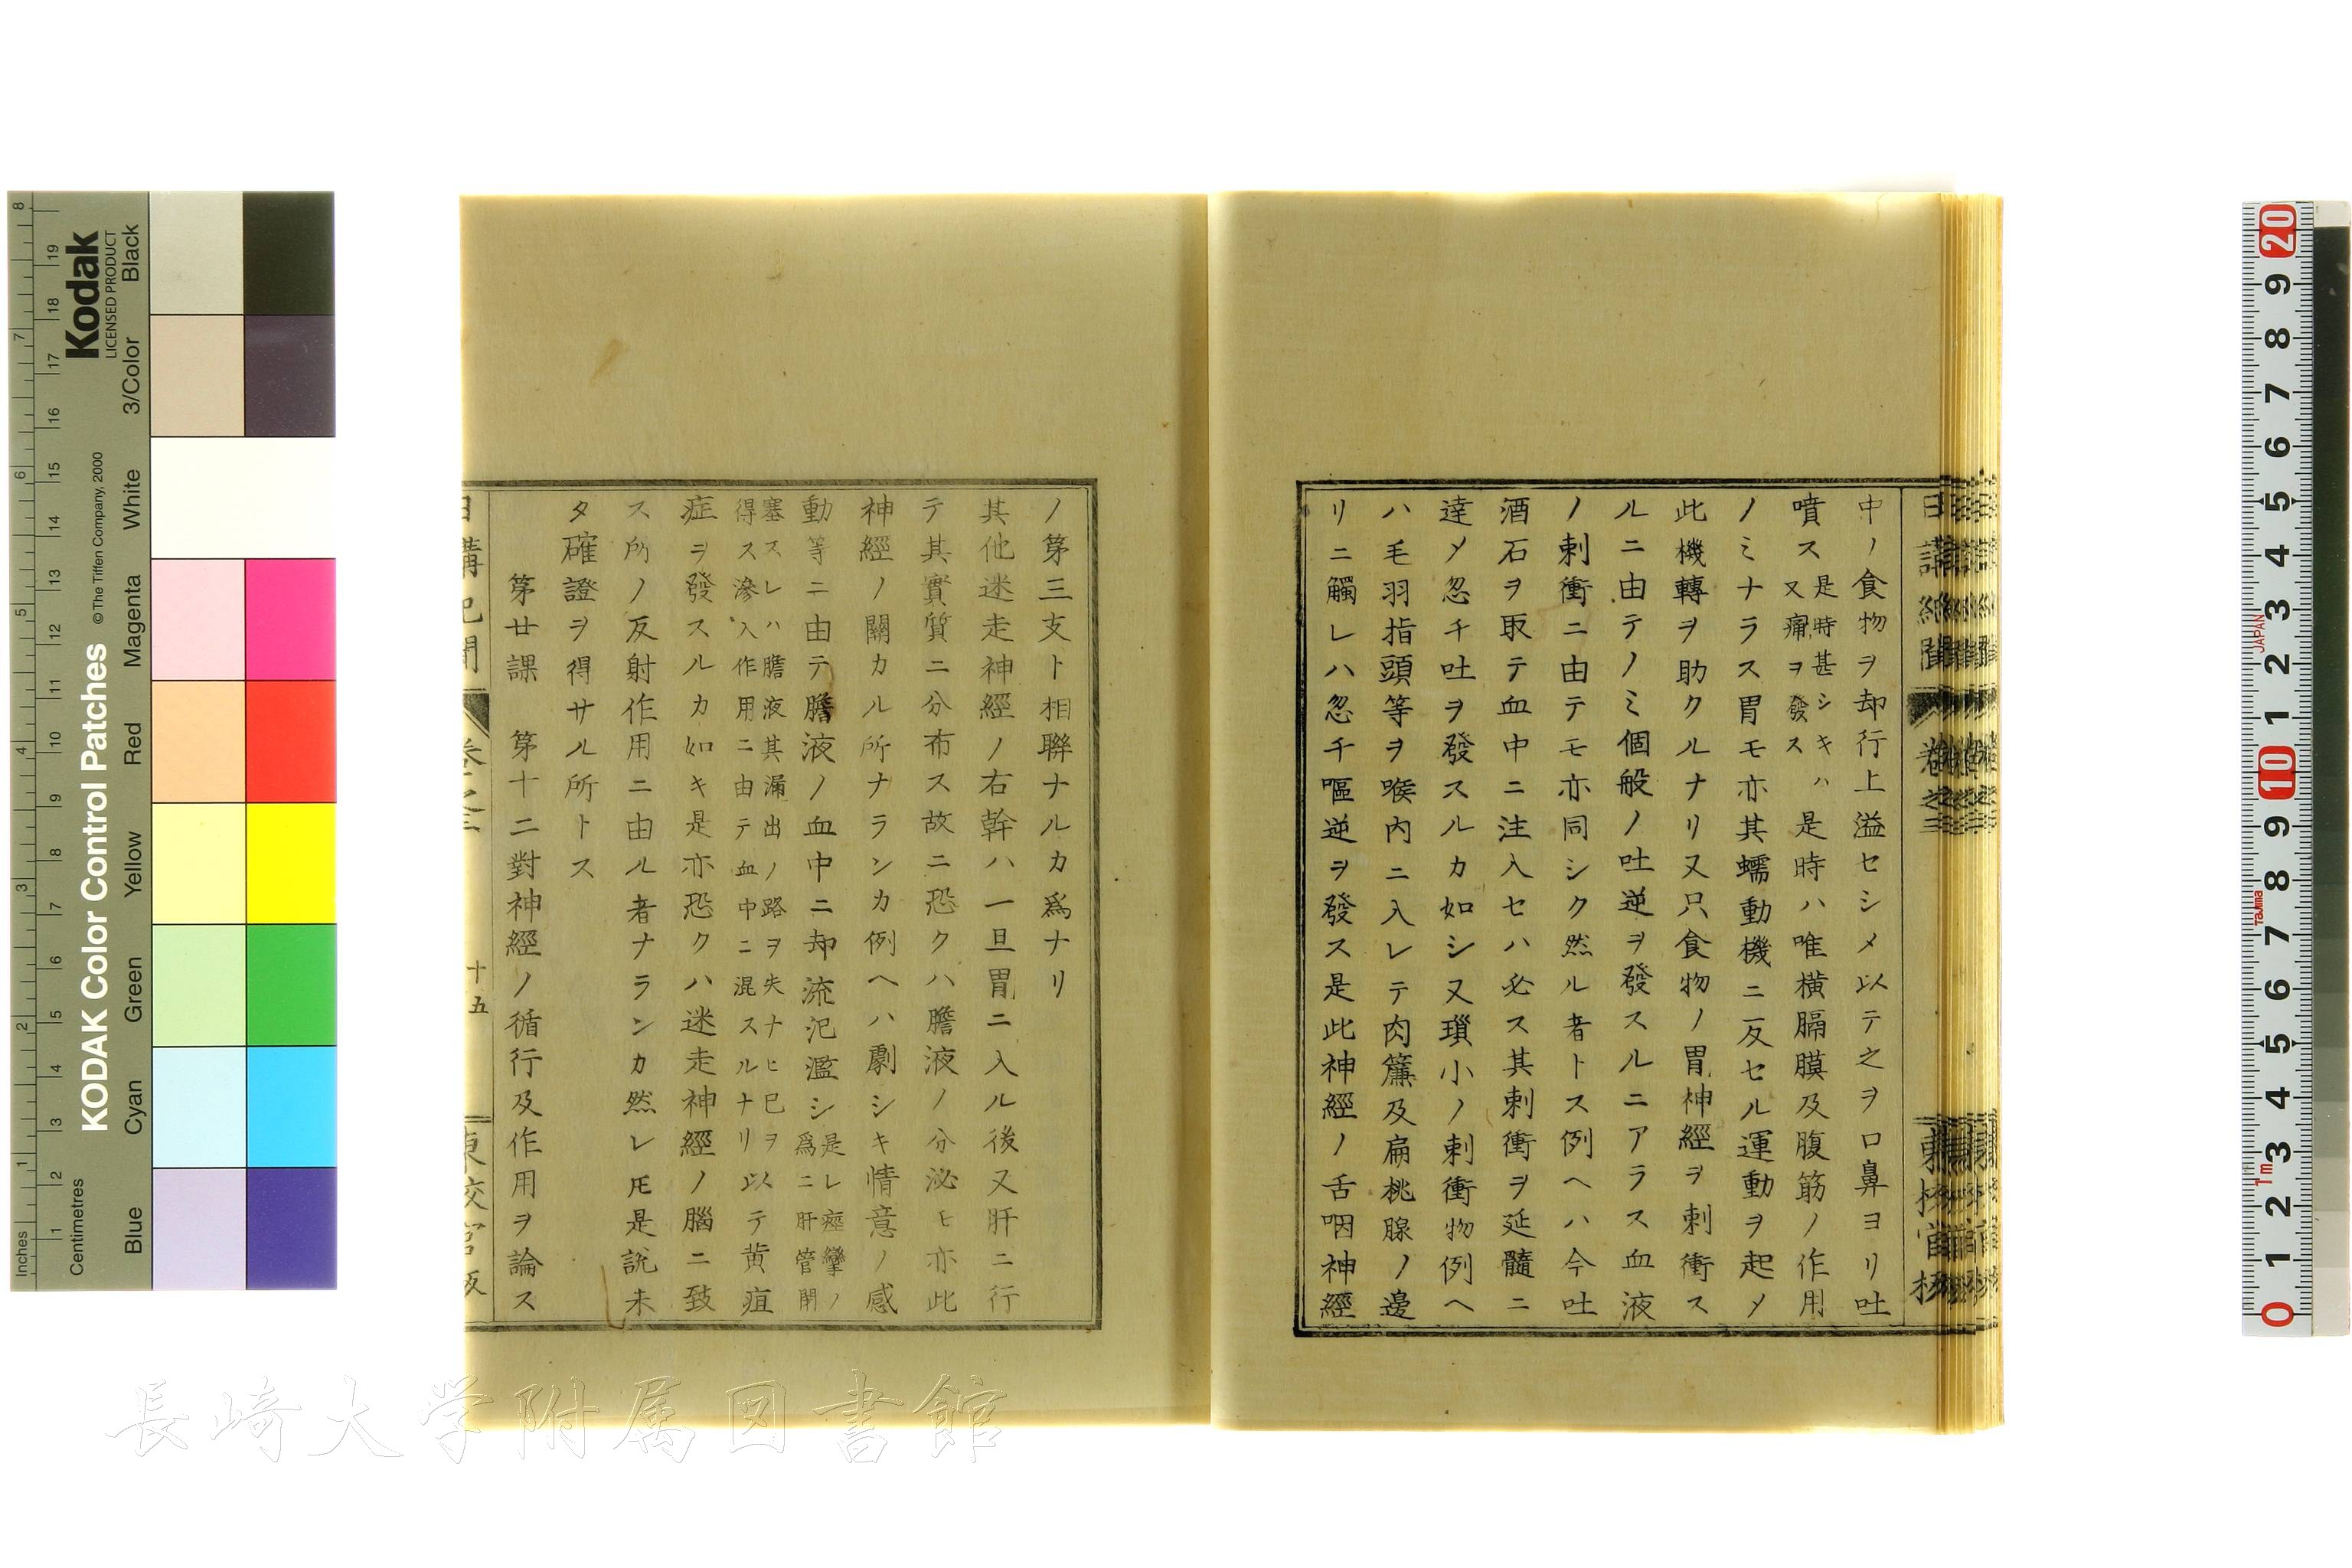 中ノ食物ヲ却行上溢セシメ以テ之ヲ口鼻ヨリ吐
噴ス是時甚シキハ又痛ヲ發ス是時ハ唯横膈膜及腹筋ノ作用
ノミナラス胃モ亦其蠕動機ニ反セル運動ヲ起メ
此機轉ヲ助クルナリ又只食物ノ胃神經ヲ刺衝ス
ルニ由テノミ個般ノ吐逆ヲ發スルニアラス血液
ノ刺衝ニ由テモ亦同シク然ル者トス例ヘハ今吐
酒石ヲ取テ血中ニ注入セハ必ス其刺衝ヲ延髓ニ
達メ忽チ吐ヲ發スルカ如シ又瑣小ノ刺衝物例ヘ
ハ毛羽指頭等ヲ喉内ニ入レテ肉簾及扁桃腺ノ邊
リニ觸レハ忽チ嘔逆ヲ發ス是此神經ノ舌咽神經
ノ第三支ト相聯ナルカ爲ナリ
其他迷走神經ノ右幹ハ一旦胃ニ入ル後又肝ニ行
テ其實質ニ分布ス故ニ恐クハ膽液ノ分泌モ亦此
神經ノ關カル所ナランカ例ヘハ劇シキ情意ノ感
動等ニ由テ膽液ノ血中ニ却流氾濫シ是レ痙攣ノ爲ニ肝管閉
塞スレハ膽液其漏出ノ路ヲ失ナヒ巳ヲ以
得ス滲入作用ニ由テ血中ニ混スルナリ以テ黄疸
症ヲ發スルカ如キ是亦恐クハ迷走神經ノ腦ニ致
ス所ノ反射作用ニ由ル者ナランカ然レ𪜈是説未
タ確證ヲ得サル所トス
第廿課 第十二對神經ノ循行及作用ヲ論ス
日講紀聞 卷之三 十五 東校官版
KODAK Color Control Patches ©The Tiffen Company, 2000
Kodak
LICENSED PRODUCT
Inches
Centimetres
Blue Cyan Green Yellow Red Magenta White 3/Color Black
長崎大学附属図書館
JAPAN
Tajima
1m